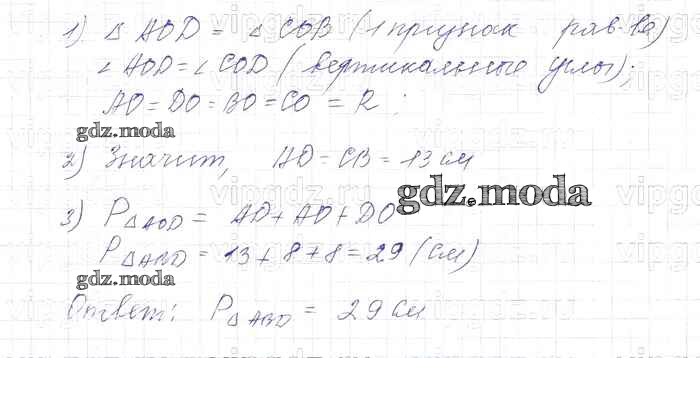 1) △ AOD = △ COB (1 признак рав-ва)
∠ AOD = ∠ COD (вертикальные углы);
AO = DO = BO = CO = R;
gdz.moda
2) Значит, AD = CB = 13 см
gdz.moda
3) P△AOD = AD + AO + DO
P△ABD = 13 + 8 + 8 = 29 (см)
gdz.moda
Ответ: P△ABD = 29 см